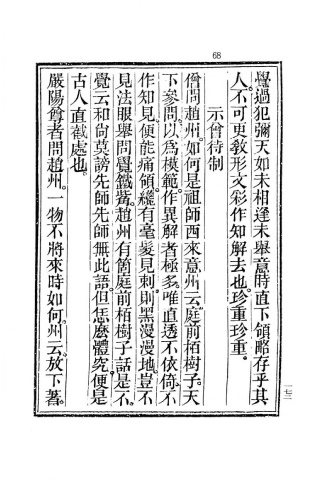 68
覺過犯彌天如未相逢未舉意時直下領略存乎其
人不可更敎形文彩作知解去也珍重珍重。
示曾待制
僧問趙州。如何是祖師西來意。州云。庭前栢樹子。天
下參問。以爲模範。作異解者極多。唯直透不依倚。不
作知見。便能痛領。纔有毫髮見刺。則黑漫漫地。豈不
見法眼舉問覺鐵觜。趙州有箇庭前栢樹子話是不。
覺云和尙莫謗先師。先師無此語。但恁麼體究。便是
古人直截處也。
嚴陽尊者問趙州。一物不將來時如何。州云。放下著。
一七二